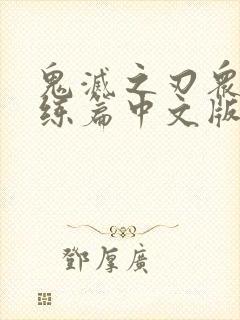 鬼滅之刃衆
练篇中文版
鄧厚廣